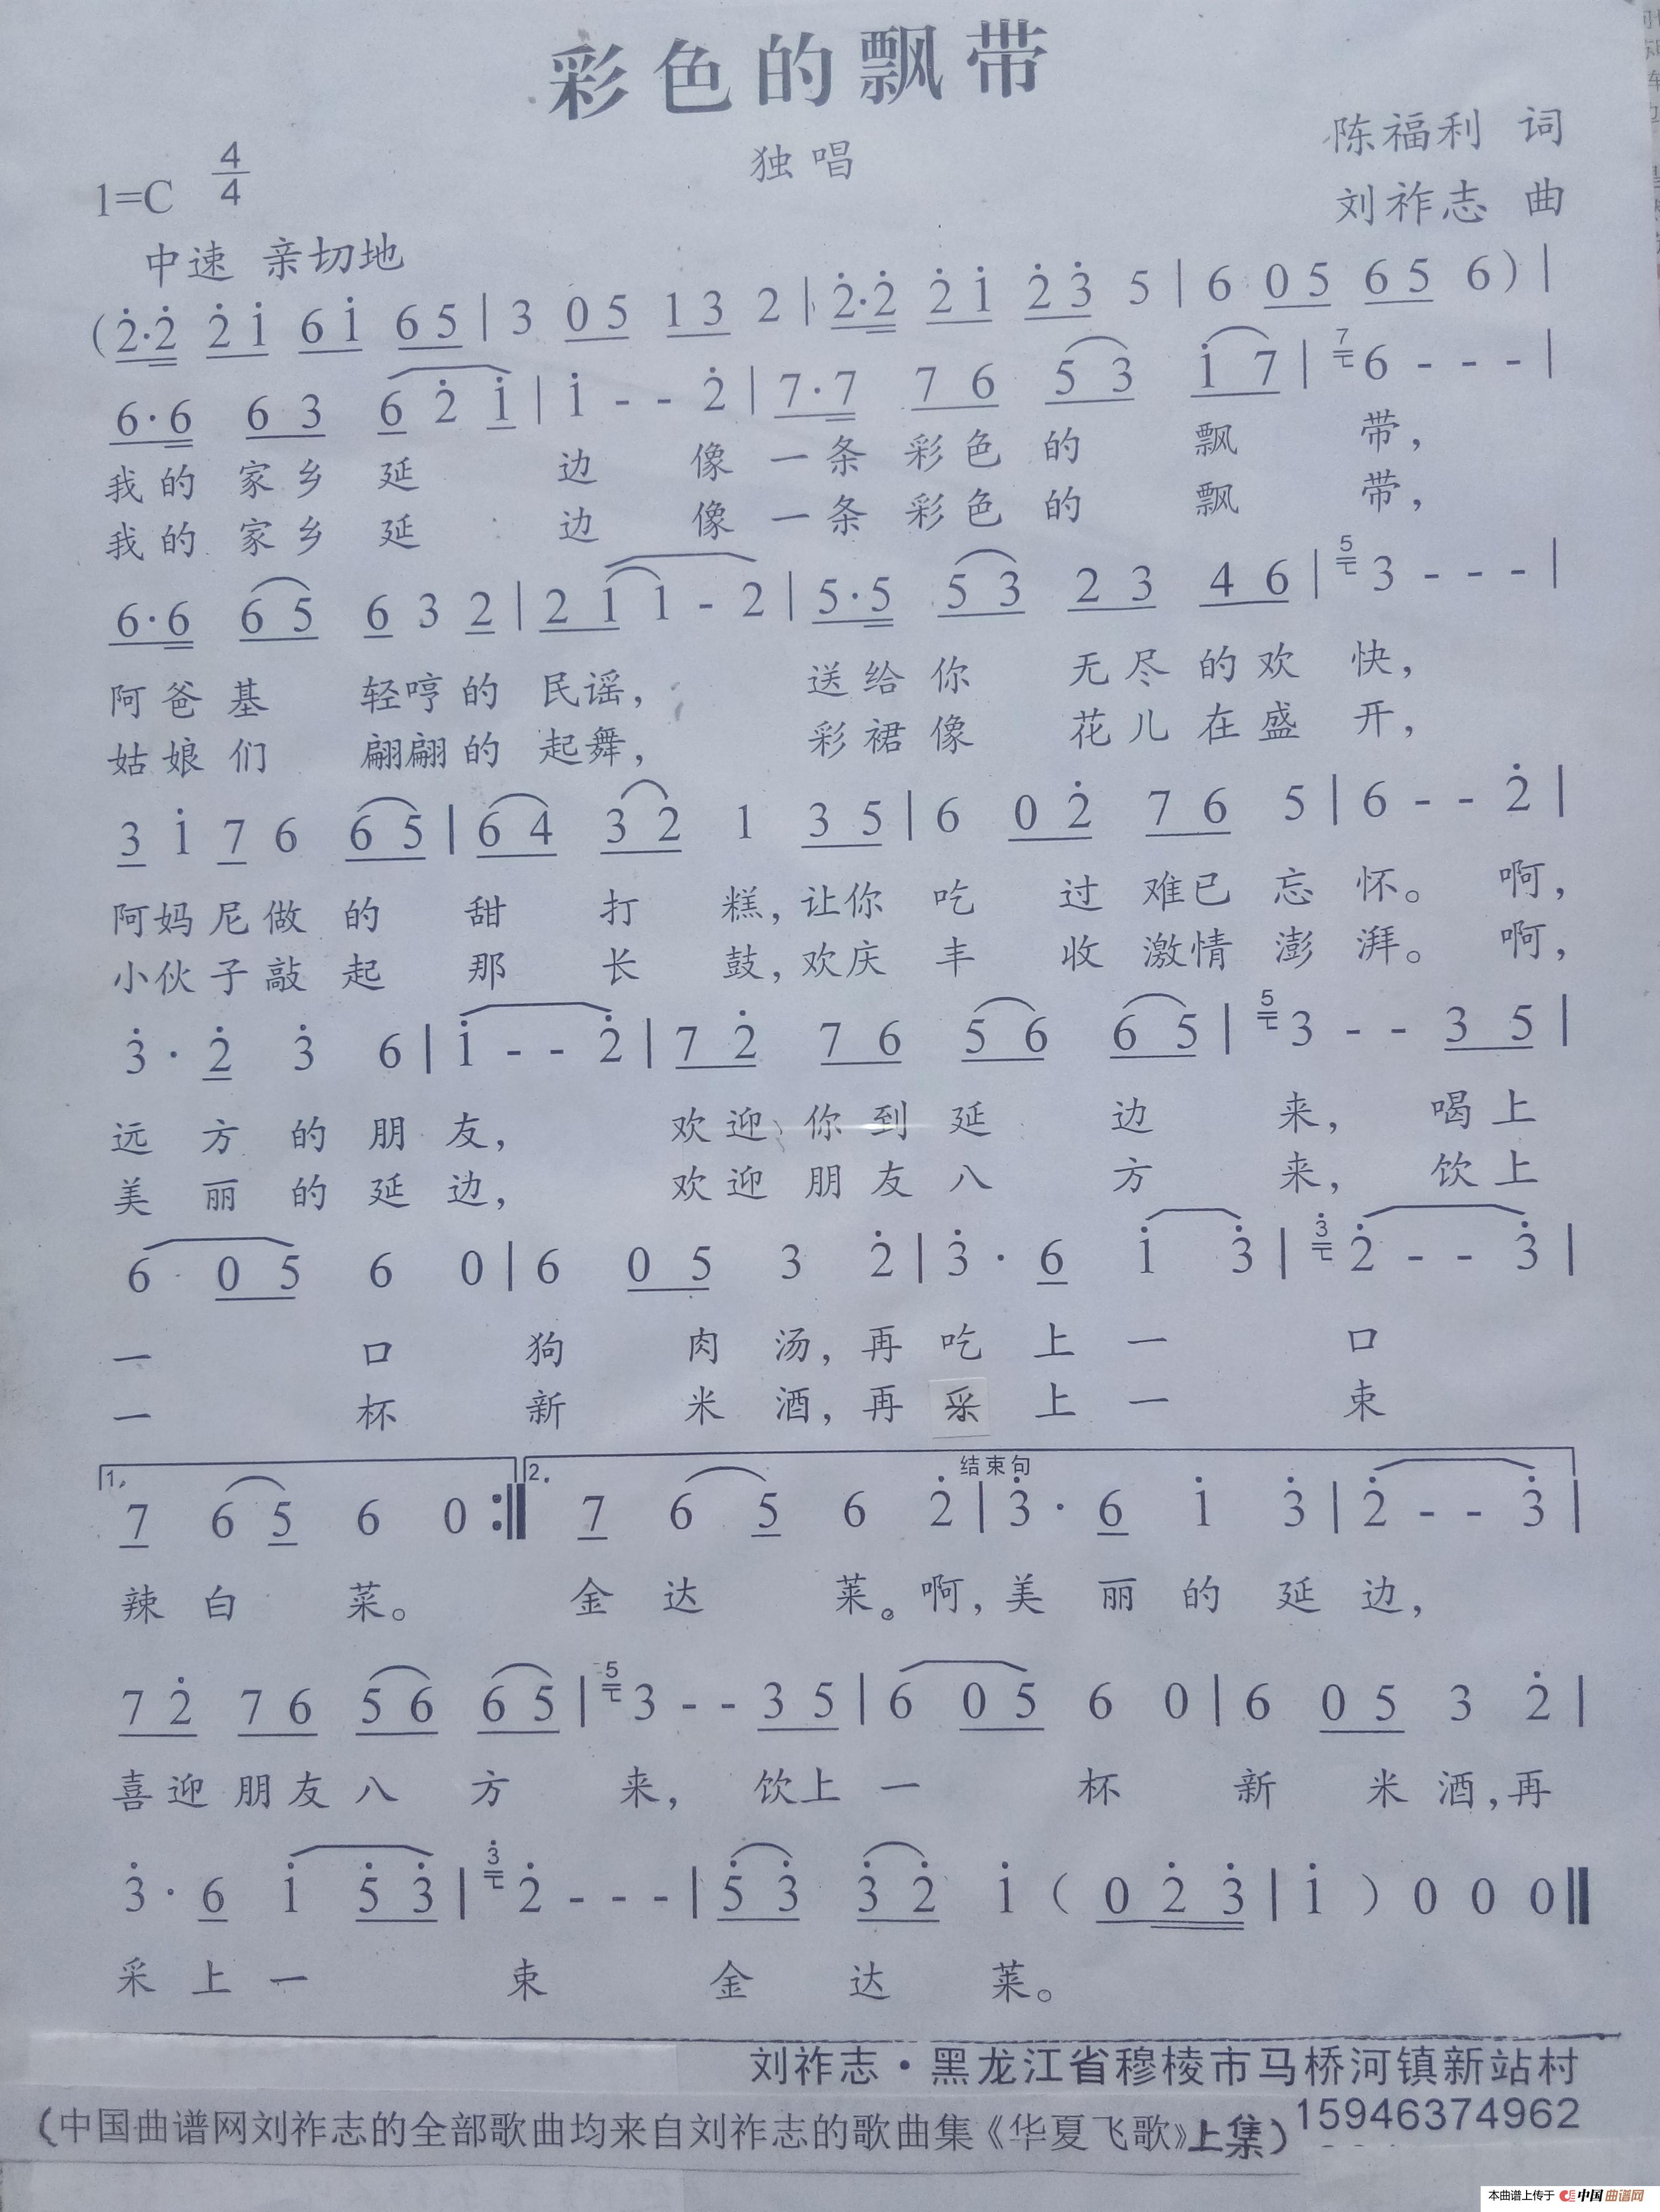 彩色的飘带
独唱
陈福利 词
刘祚志 曲
1=C 4/4
中速 亲切地
(2̇·2̇ 2̇ 1̇ 6 1̇ 6 5 | 3 0 5 1 3 2 | 2̇·2̇ 2̇ 1̇ 2̇ 3̇ 5 | 6 0 5 6 5 6 ) |
6·6 6 3 6 2̇ 1̇ | 1̇ - - 2̇ | 7·7 7 6 5 3 1̇ 7 | 7 6 - - - |
我的 家乡 延 边 像 一条 彩色 的 飘 带,
我的 家乡 延 边 像 一条 彩色 的 飘 带,
6·6 6 5 6 3 2 | 2 1 1 - 2 | 5·5 5 3 2 3 4 6 | 5 3 - - - |
阿爸 基 轻哼 的 民谣, 送给 你 无尽 的欢 快,
姑娘 们 翩翩 的 起舞, 彩裙 像 花儿 在盛 开,
3 1̇ 7 6 6 5 | 6 4 3 2 1 3 5 | 6 0 2̇ 7 6 5 | 6 - - 2̇ |
阿妈 尼做 的 甜 打 糕,让你 吃 过 难已 忘 怀。 啊,
小伙 子敲 起 那 长 鼓,欢庆 丰 收 激情 澎 湃。 啊,
3̇ · 2̇ 3̇ 6 | 1̇ - - 2̇ | 7 2̇ 7 6 5 6 6 5 | 5 3 - - 3 5 |
远 方 的 朋 友, 欢迎 你到 延 边 来, 喝上
美 丽 的 延 边, 欢迎 朋友 八 方 来, 饮上
6 0 5 6 0 | 6 0 5 3 2̇ | 3̇ · 6 1̇ 3̇ | 3̇ 2̇ - - 3̇ |
一 口 狗 肉 汤,再 吃 上 一 口
一 杯 新 米 酒,再 采 上 一 束
1. 2. 结束句
7 6 5 6 0 :‖ 7 6 5 6 2̇ | 3̇ · 6 1̇ 3̇ | 2̇ - - 3̇ |
辣 白 菜。 金 达 莱。啊,美 丽 的 延 边,
7 2̇ 7 6 5 6 6 5 | 5 3 - - 3 5 | 6 0 5 6 0 | 6 0 5 3 2̇ |
喜迎 朋友 八 方 来, 饮上 一 杯 新 米 酒,再
3̇ · 6 1̇ 5̇ 3̇ | 3̇ 2̇ - - - | 5̇ 3̇ 3̇ 2̇ 1̇ ( 0 2̇ 3̇ | 1̇ ) 0 0 0 ‖
采 上 一 束 金 达 莱。
刘祚志·黑龙江省穆棱市马桥河镇新站村
(中国曲谱网刘祚志的全部歌曲均来自刘祚志的歌曲集《华夏飞歌》上集)
15946374962
本曲谱上传于 中国曲谱网